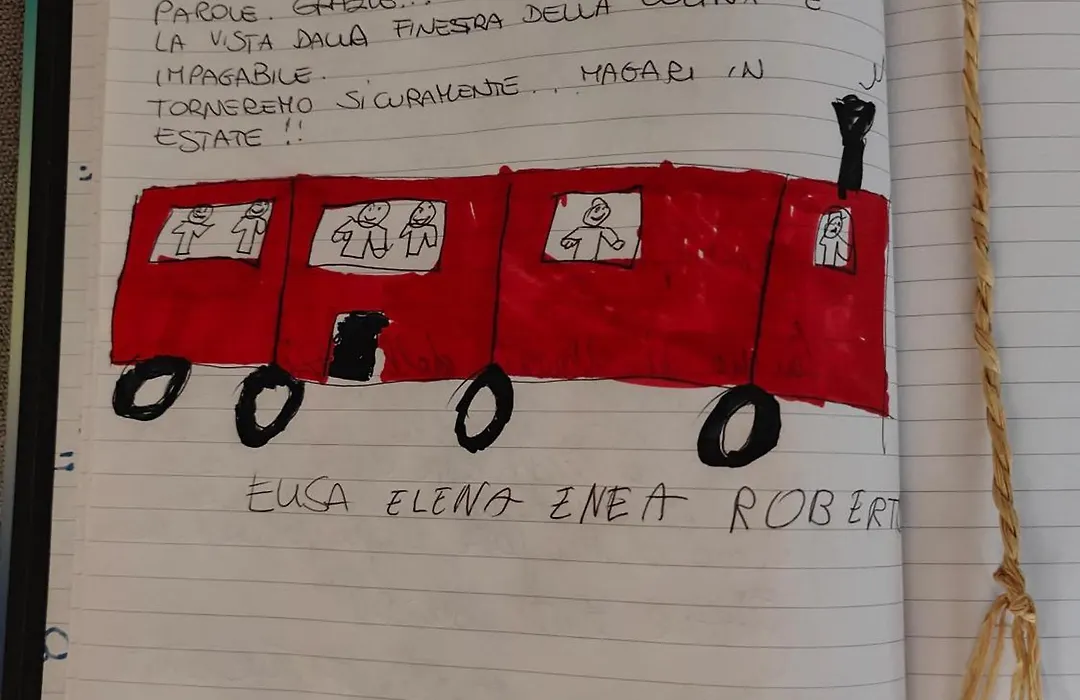 PAROLE. GRAZIE...
LA VISTA DALLA FINESTRA DELLA CUCINA E'
IMPAGABILE.
TORNEREMO SICURAMENTE... MAGARI IN
ESTATE!!
ELISA ELENA ENEA ROBERTO